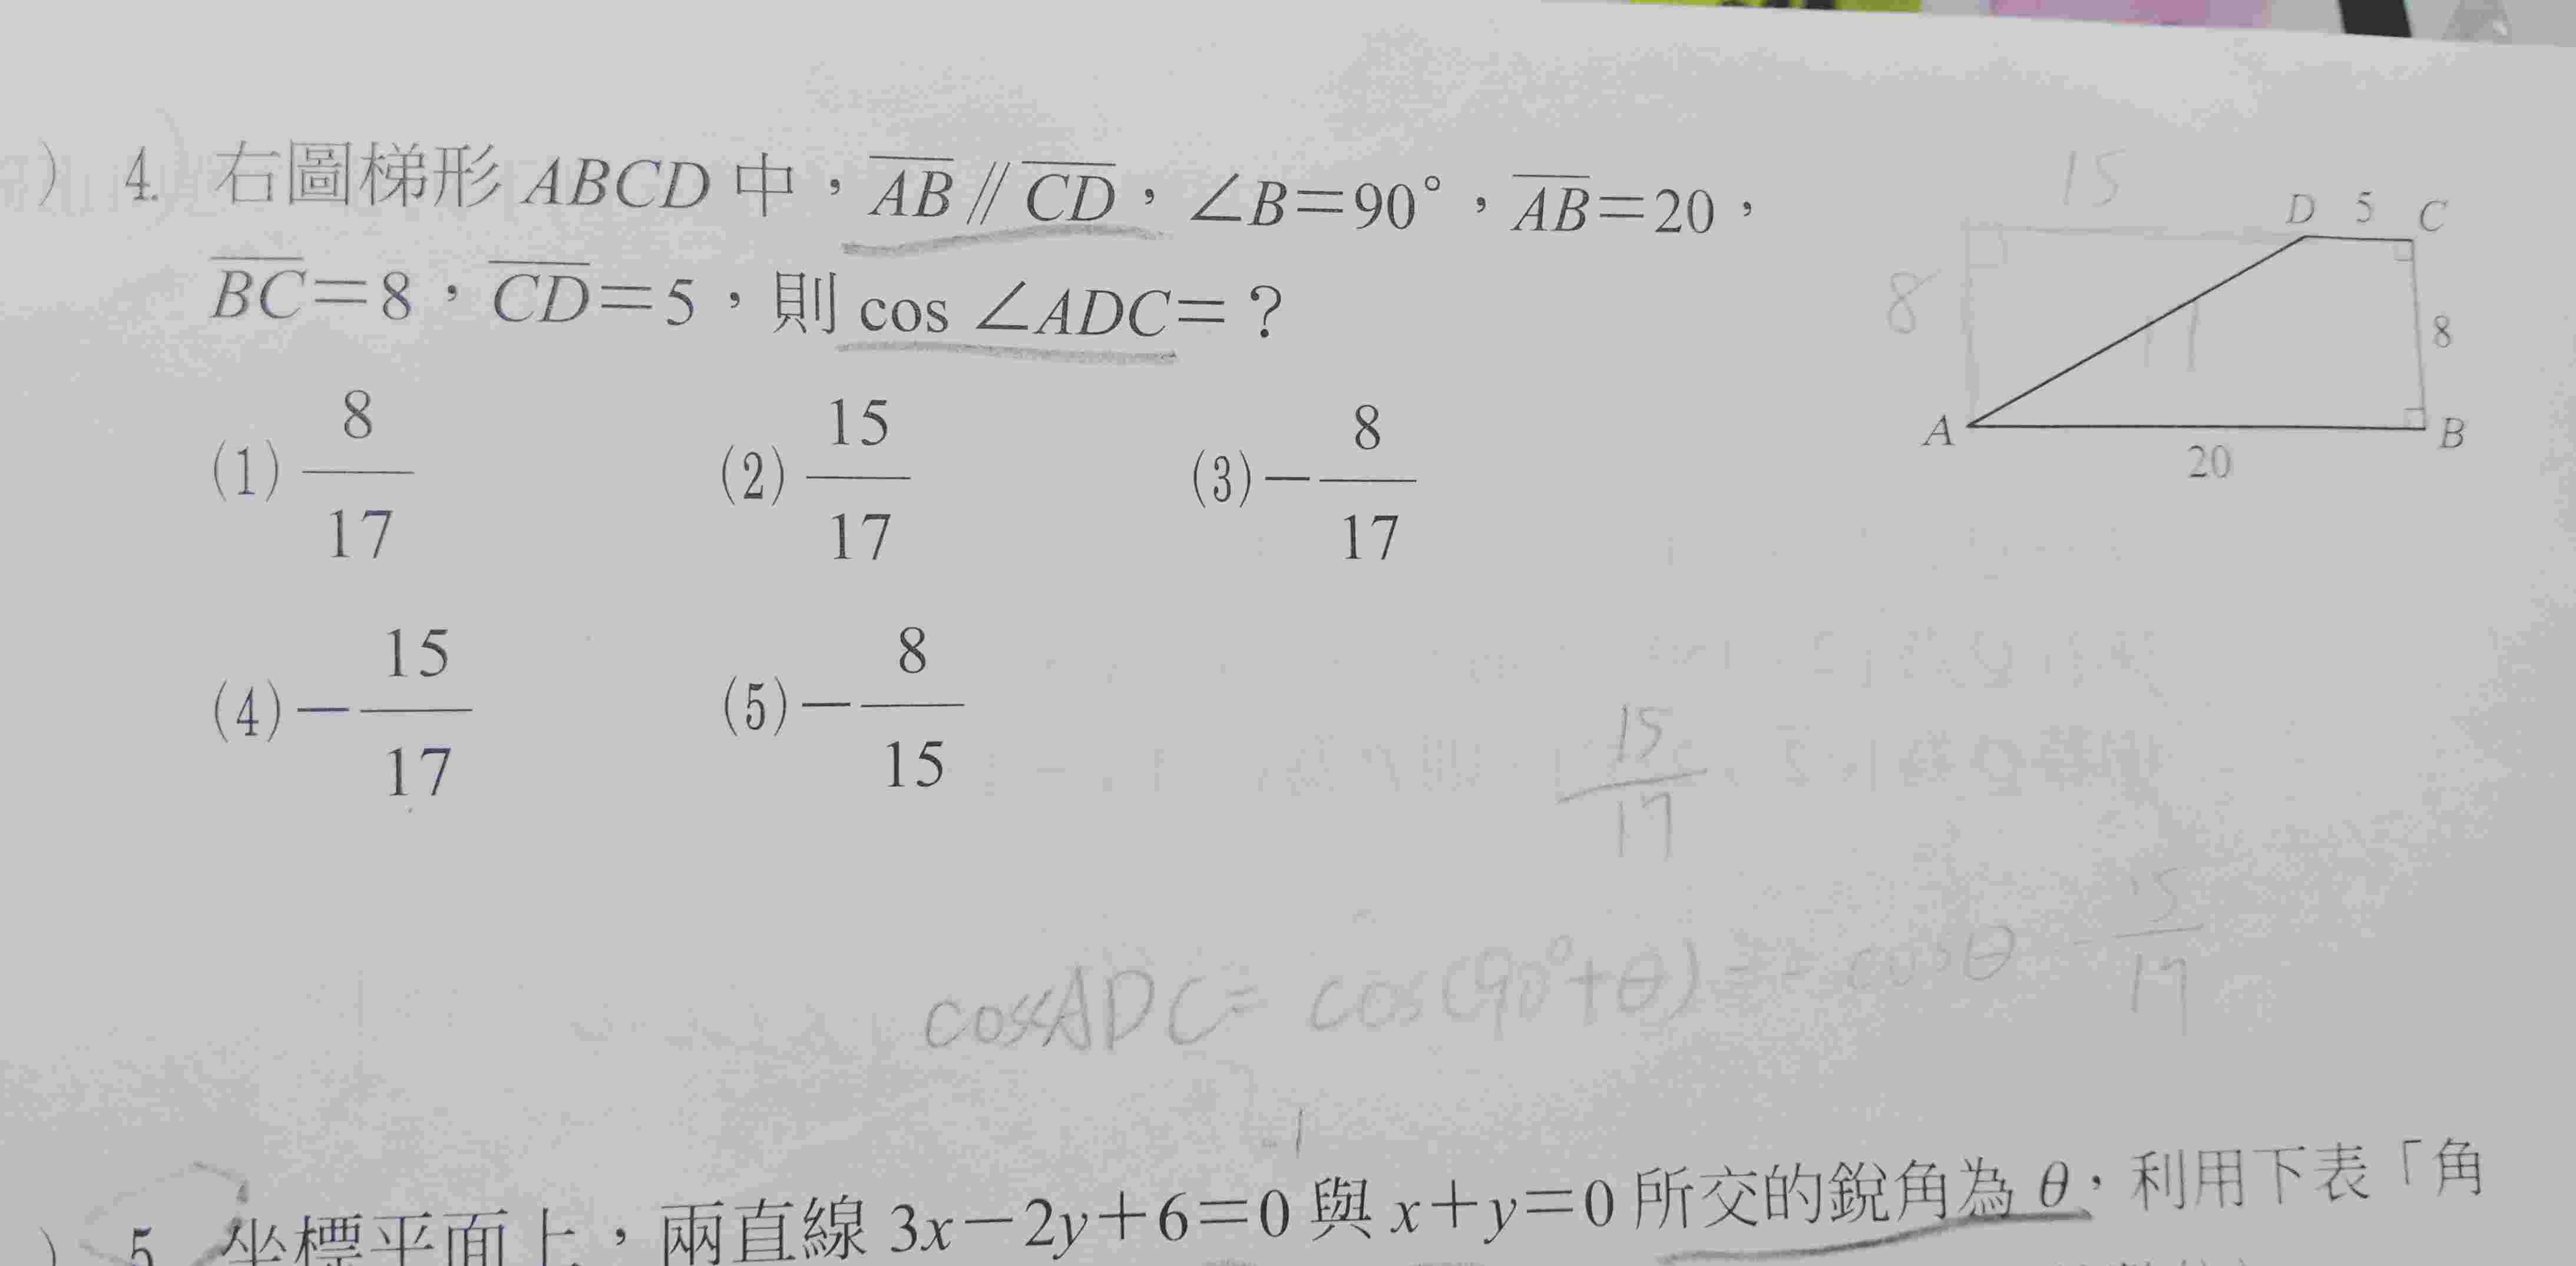 ) 4. 右圖梯形 ABCD 中，AB // CD，∠B＝90°，AB＝20，
BC＝8，CD＝5，則 cos ∠ADC＝？
(1) 8/17 (2) 15/17 (3) －8/17
(4) －15/17 (5) －8/15
15
D 5 C
8
17
8
A
B
20
15/17
cos∠ADC = cos(90°+θ) = - cosθ - 15/17
-1
) 5. 坐標平面上，兩直線 3x－2y＋6＝0 與 x＋y＝0 所交的銳角為 θ，利用下表「角